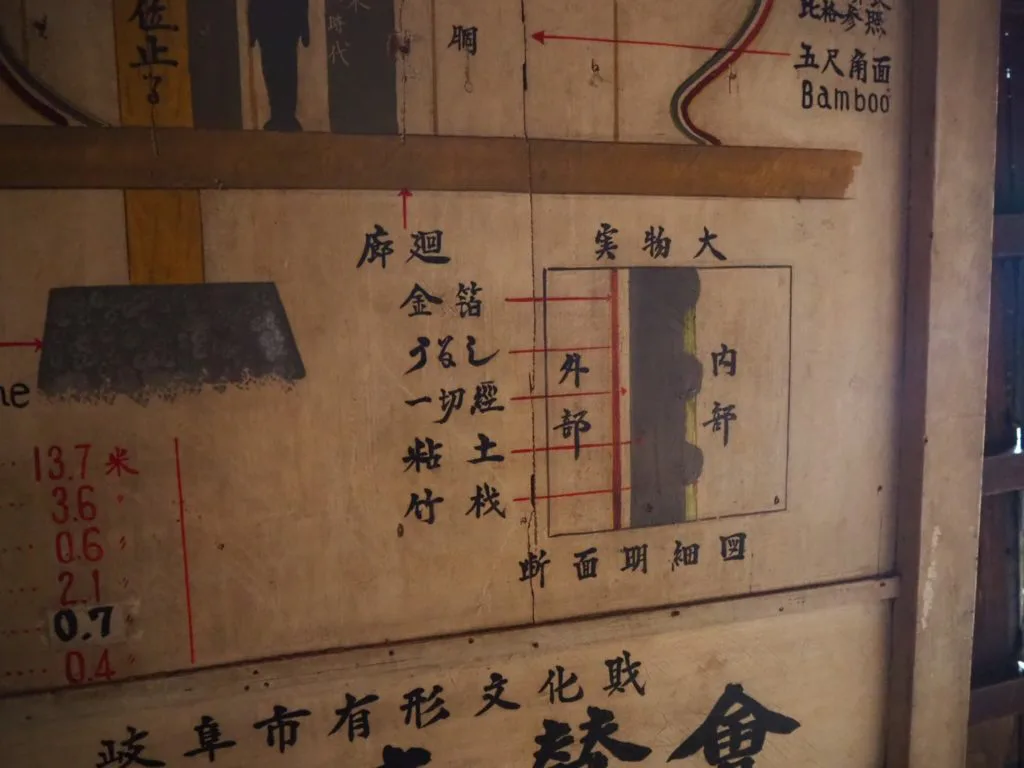 位止る
時代
胴
五尺角面
Bamboo
廊廻
実物大
金箔
うるし
一切經
粘土
竹桟
外部
内部
断面明細図
13.7 米
3.6 〃
0.6 〃
2.1 〃
0.7
0.4
岐阜市有形文化財
會